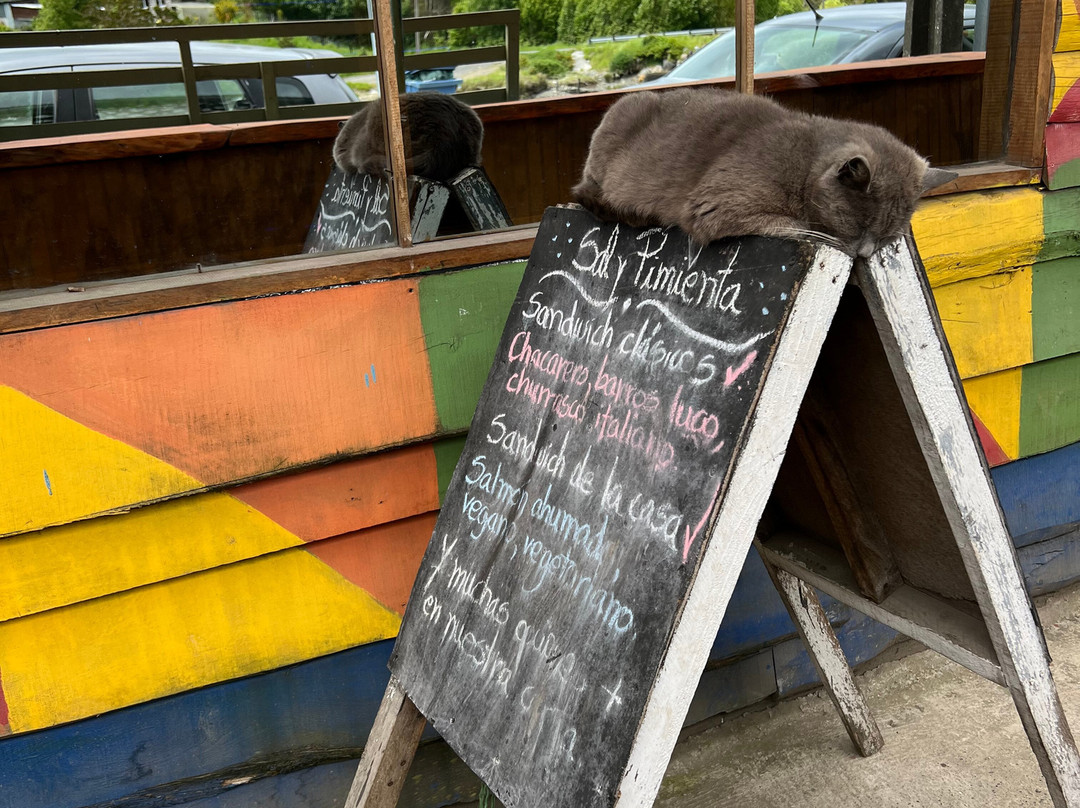 Sal y Pimienta
Sandwich clásicos
Chacarero, barros luco,
churrasco, italiano
Sandwich de la casa
Salmon ahumado
vegano, vegetariano.
Y muchas
en nuestra carta